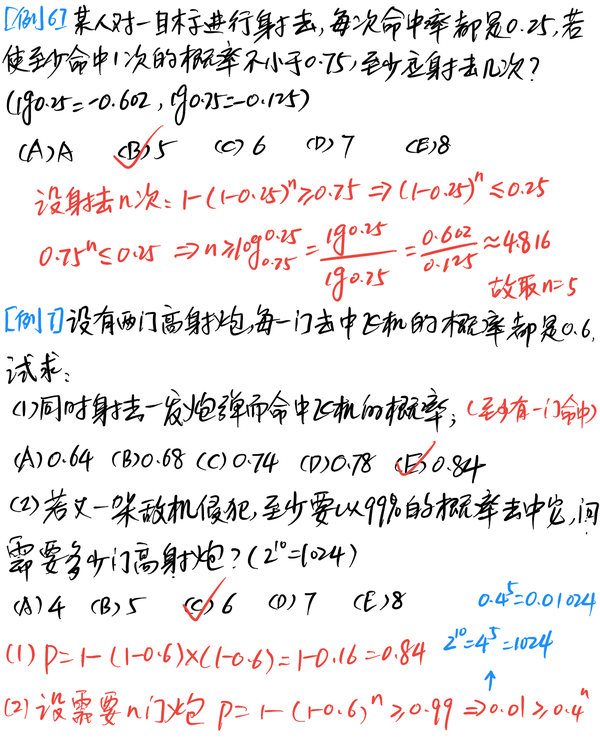 [例6] 某人对一目标进行射击,每次命中率都是0.25,若
使至少命中1次的概率不小于0.75,至少应射击几次?
(lg0.25=-0.602, lg0.75=-0.125)
(A)A (B)5 (C)6 (D)7 (E)8
设射击n次: 1-(1-0.25)ⁿ≥0.75 ⇒ (1-0.25)ⁿ ≤0.25
0.75ⁿ≤0.25 ⇒ n≥log₀.₇₅0.25 = lg0.25/lg0.75 = 0.602/0.125 ≈4.816
故取n=5
[例7] 设有两门高射炮,每一门击中飞机的概率都是0.6,
试求:
(1)同时射击一发炮弹而命中飞机的概率; (至少有一门命中)
(A)0.64 (B)0.68 (C)0.74 (D)0.78 (E)0.84
(2)若又一架敌机侵犯,至少要以99%的概率击中它,问
需要多少门高射炮?(2¹⁰=1024)
(A)4 (B)5 (C)6 (D)7 (E)8 0.4⁵=0.01024
(1) P=1-(1-0.6)×(1-0.6)=1-0.16=0.84 2¹⁰=4⁵=1024
(2) 设需要n门炮 P=1-(1-0.6)ⁿ≥0.99 ⇒0.01≥0.4ⁿ